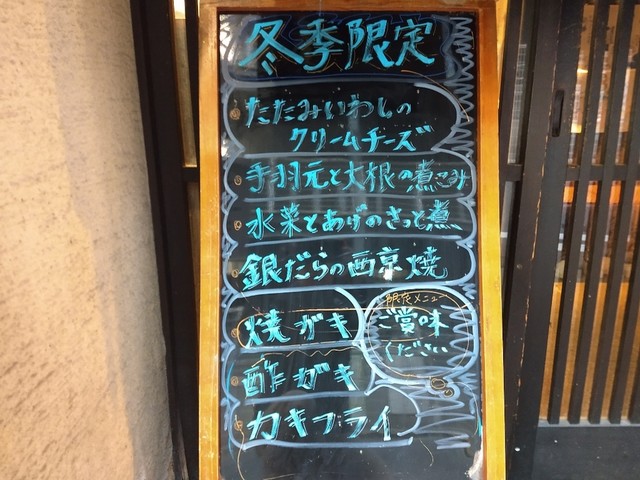 冬季限定
たたみいわしの
クリームチーズ
手羽元と大根の煮こみ
水菜とあげのさっと煮
銀だらの西京焼
焼ガキ
酢ガキ
カキフライ
限定メニュー
ご賞味
ください